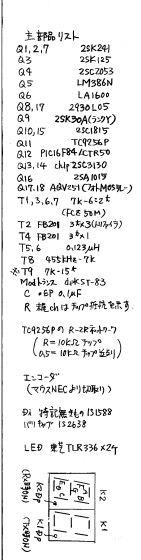 主部品リスト
Q1,2,7 2SK241
Q3 2SK125
Q4 2SC2053
Q5 LM386N
Q6 LA1600
Q8,17 2930L05
Q9 2SK30A(ランクY)
Q10,15 2SC1815
Q11 TC9256P
Q12 PIC16F84/CTR50
Q13,14 chip 2SC3130
Q16 2SA1015
Q17,18 AQV251(フォトMOSリレー)
T1,3,6,7 7K-6m2t
(FCZ 50M)
T2 FB201 3t×3(トリファイラ)
T4 FB201 3t×1
T5,6 0.123μH
T8 455kHz-7K
※T9 7K-15t
C *6P 0.1μF
TC9256PのR-2Rネットワーク
(R=10KΩチップ
0.5=10KΩチップ並列)
エンコーダ
(マウスNECより切取り)
Di 特記無きもの1S1588
バリキャップ1S2638
LED 東芝TLR336×2ケ
K2
K1